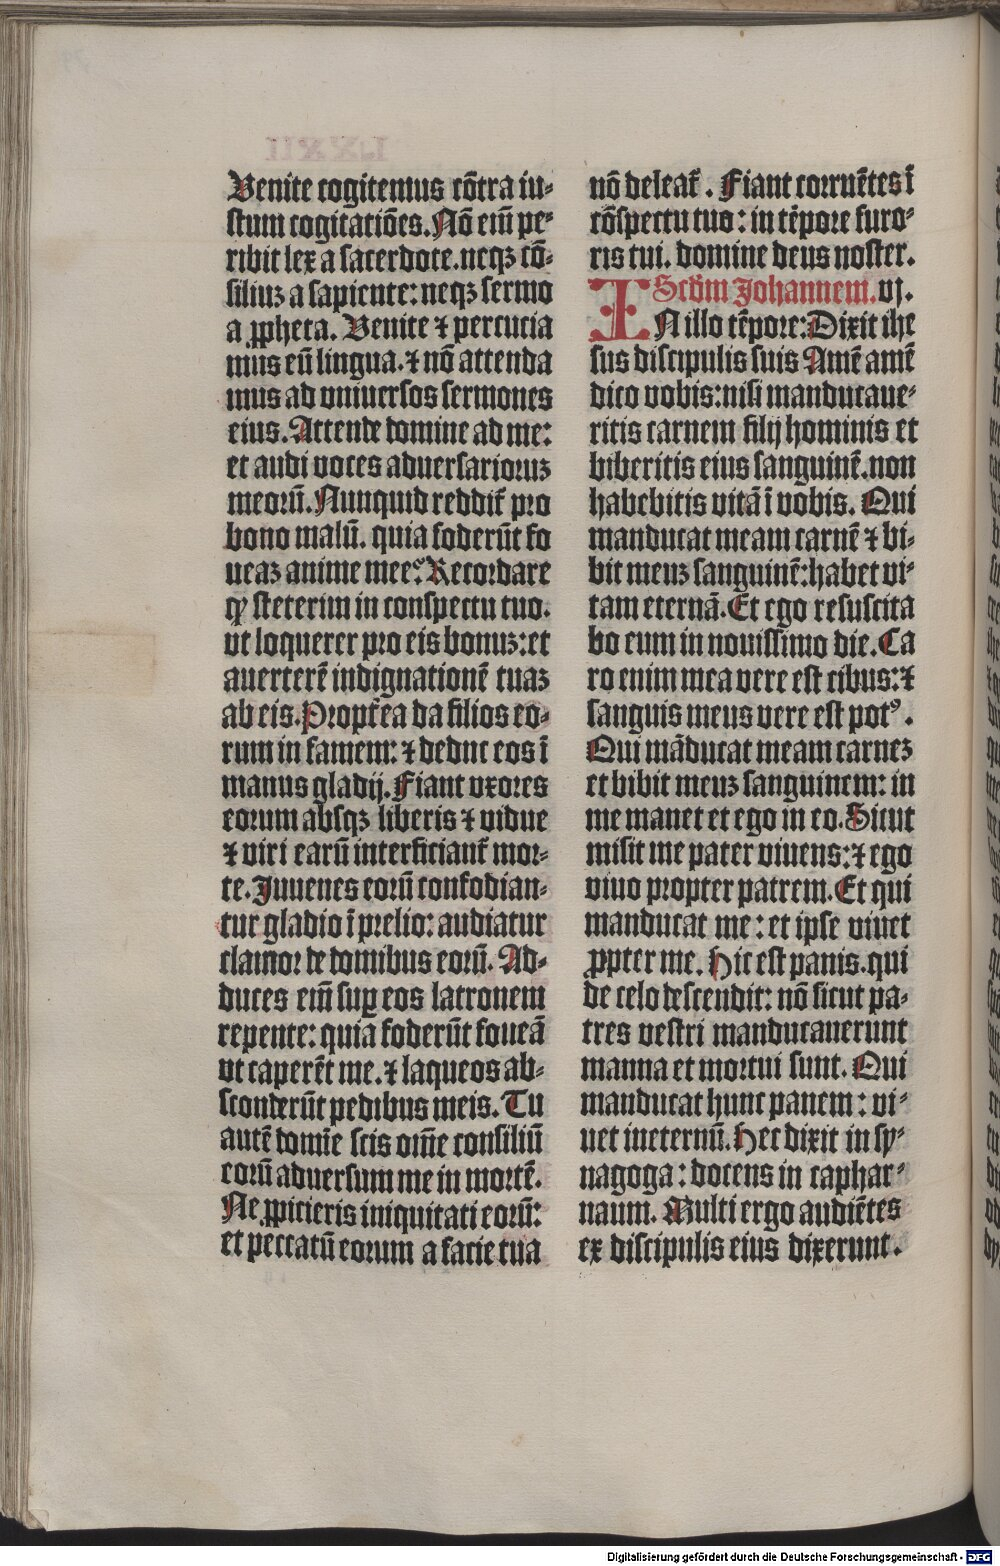 Venite cogitemus cõtra iu-
stum cogitatiões. Nõ eiñ pe-
ribit lex a sacerdote. neqz cõ-
siliuz a sapiente: neqz sermo
a ꝓpheta. Venite ⁊ percucia
mus eũ lingua. ⁊ nõ attenda
mus ad vniuersos sermones
eius. Attende domine ad me:
et audi voces aduersarioruz
meorũ. Nunquid reddit̃ pro
bono malũ. quia foderũt fo
ueaz anime mee? Recordare
ꝙ steterim in conspectu tuo.
vt loquerer pro eis bonuz: et
auerterẽ indignationẽ tuaz
ab eis. Propt̃ea da filios eo-
rum in famem: ⁊ deduc eos ĩ
manus gladij. Fiant vxores
eorum absqz liberis ⁊ vidue
⁊ viri earũ interficiant̃ mor-
te. Juuenes eorũ confodian-
tur gladio ĩ prelio: audiatur
clamor de domibus eorũ. Ad-
duces eiñ suꝑ eos latronem
repente: quia foderũt foueã
vt caperẽt me. ⁊ laqueos ab-
sconderũt pedibus meis. Tu
autẽ domĩe scis om̃e consiliũ
eorũ aduersum me in mortẽ.
Ne ꝓpicieris iniquitati eorũ:
et peccatũ eorum a facie tua
nõ deleat̃. Fiant corruẽtes ĩ
cõspectu tuo: in tẽpore furo-
ris tui. domine deus noster.
Scd̃m Johannem. vj.
IN illo tẽpore: Dixit ihe
sus discipulis suis Amẽ amẽ
dico vobis: nisi manducaue-
ritis carnem filij hominis et
biberitis eius sanguinẽ. non
habebitis vitã ĩ vobis. Qui
manducat meam carnẽ ⁊ bi-
bit meuz sanguinẽ: habet vi-
tam eternã. Et ego resuscita
bo eum in nouissimo die. Ca
ro enim mea vere est cibus: ⁊
sanguis meus vere est potꝰ.
Qui mãducat meam carnez
et bibit meuz sanguinem: in
me manet et ego in eo. Sicut
misit me pater viuens: ⁊ ego
viuo propter patrem. Et qui
manducat me: et ipse viuet
ꝓpter me. Hic est panis. qui
de celo descendit: nõ sicut pa-
tres vestri manducauerunt
manna et mortui sunt. Qui
manducat hunc panem: vi-
uet ineternũ. Hec dixit in sy-
nagoga: docens in caphar-
naum. Multi ergo audiẽtes
ex discipulis eius dixerunt.
Digitalisierung gefördert durch die Deutsche Forschungsgemeinschaft - DFG